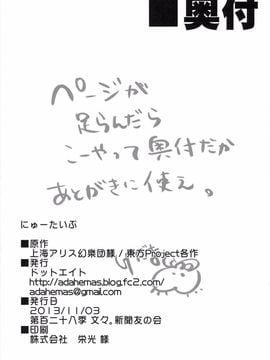 ■奥付
ページが
足らんだら
こーやって奥付だか
あとがきに使え。
にゅーたいぷ
■原作
上海アリス幻樂団様／東方Project各作
■発行
ドットエイト
http://adahemas.blog.fc2.com/
adahemas@gmail.com
■発行日
2013/11/03
第百二十八季 文々。新聞友の会
■印刷
株式会社 栄光 様